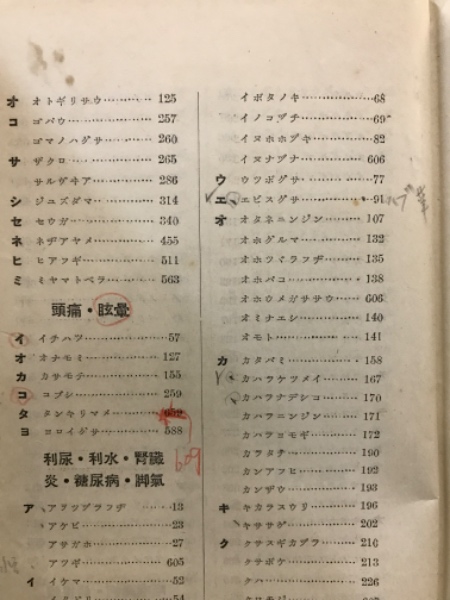 オ オトギリサウ 125
コ ゴバウ 257
ゴマノハグサ 260
サ ザクロ 265
サルヴィア 286
シ ジュズダマ 314
セ セウガ 340
ネ ネヂアヤメ 455
ヒ ヒアフギ 511
ミ ミヤマトベラ 563
頭痛・眩暈
イ イチハツ 57
オ オナモミ 127
カ カサモチ 155
コ コブシ 259
タ タンキリマメ 609
ヨ ヨロイグサ 588
利尿・利水・腎臓
炎・糖尿病・脚氣
ア 13
アケビ 23
アサガホ 27
アフギ 605
イ イケマ 52
イボタノキ 68
イノコヅチ 69
イヌホホヅキ 82
イヌナヅナ 606
ウ ウツボグサ 77
エ エビスグサ 91
オ オタネニンジン 107
オホグルマ 132
オホツヾラフヂ 135
オホバコ 138
オホウメガササウ 606
オミナエシ 140
オモト 141
カ カタバミ 158
カハラケツメイ 167
カハラナデシコ 170
カハラニンジン 171
カハラヨモギ 172
カラタチ 190
カンアフヒ 192
カンザウ 193
キ キカラスウリ 196
キササゲ 202
ク クサスギカヅラ 216
クサボケ 213
クハ 226